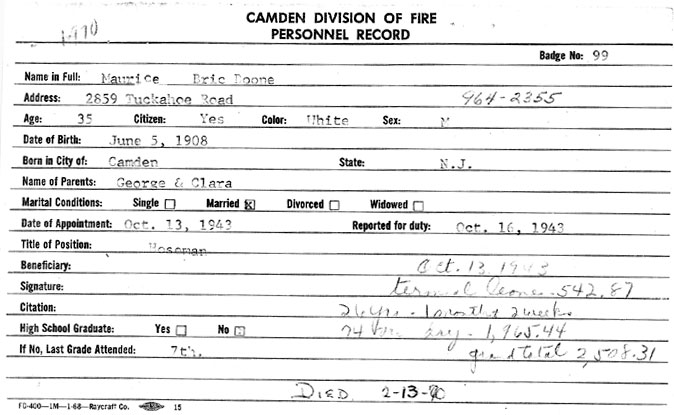 CAMDEN DIVISION OF FIRE
1-970
PERSONNEL RECORD
Badge No: 99
Name in Full: Maurice Eric Doone
Address: 2859 Tuckahoe Road 964-2355
Age: 35 Citizen: Yes Color: White Sex: M
Date of Birth: June 5, 1908
Born in City of: Camden State: N.J.
Name of Parents: George & Clara
Marital Conditions: Single Married Divorced Widowed
Date of Appointment: Oct. 13, 1943 Reported for duty: Oct. 16, 1943
Title of Position: Hoseman
Beneficiary: Oct. 13, 1943
Signature: 542,87
Citation: 26 yrs. 1 month 2 weeks
High School Graduate: Yes No 1,965.44
If No, Last Grade Attended: 7th. grand total 2,508.31
DIED 2-13-70
FD-400—1M—1-68—Raycraft Co. 15